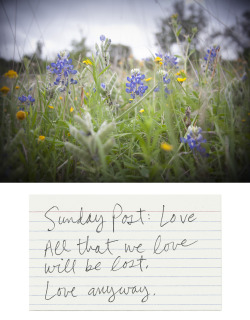 Sunday Post: Love
All that we love
will be lost.
Love anyway.